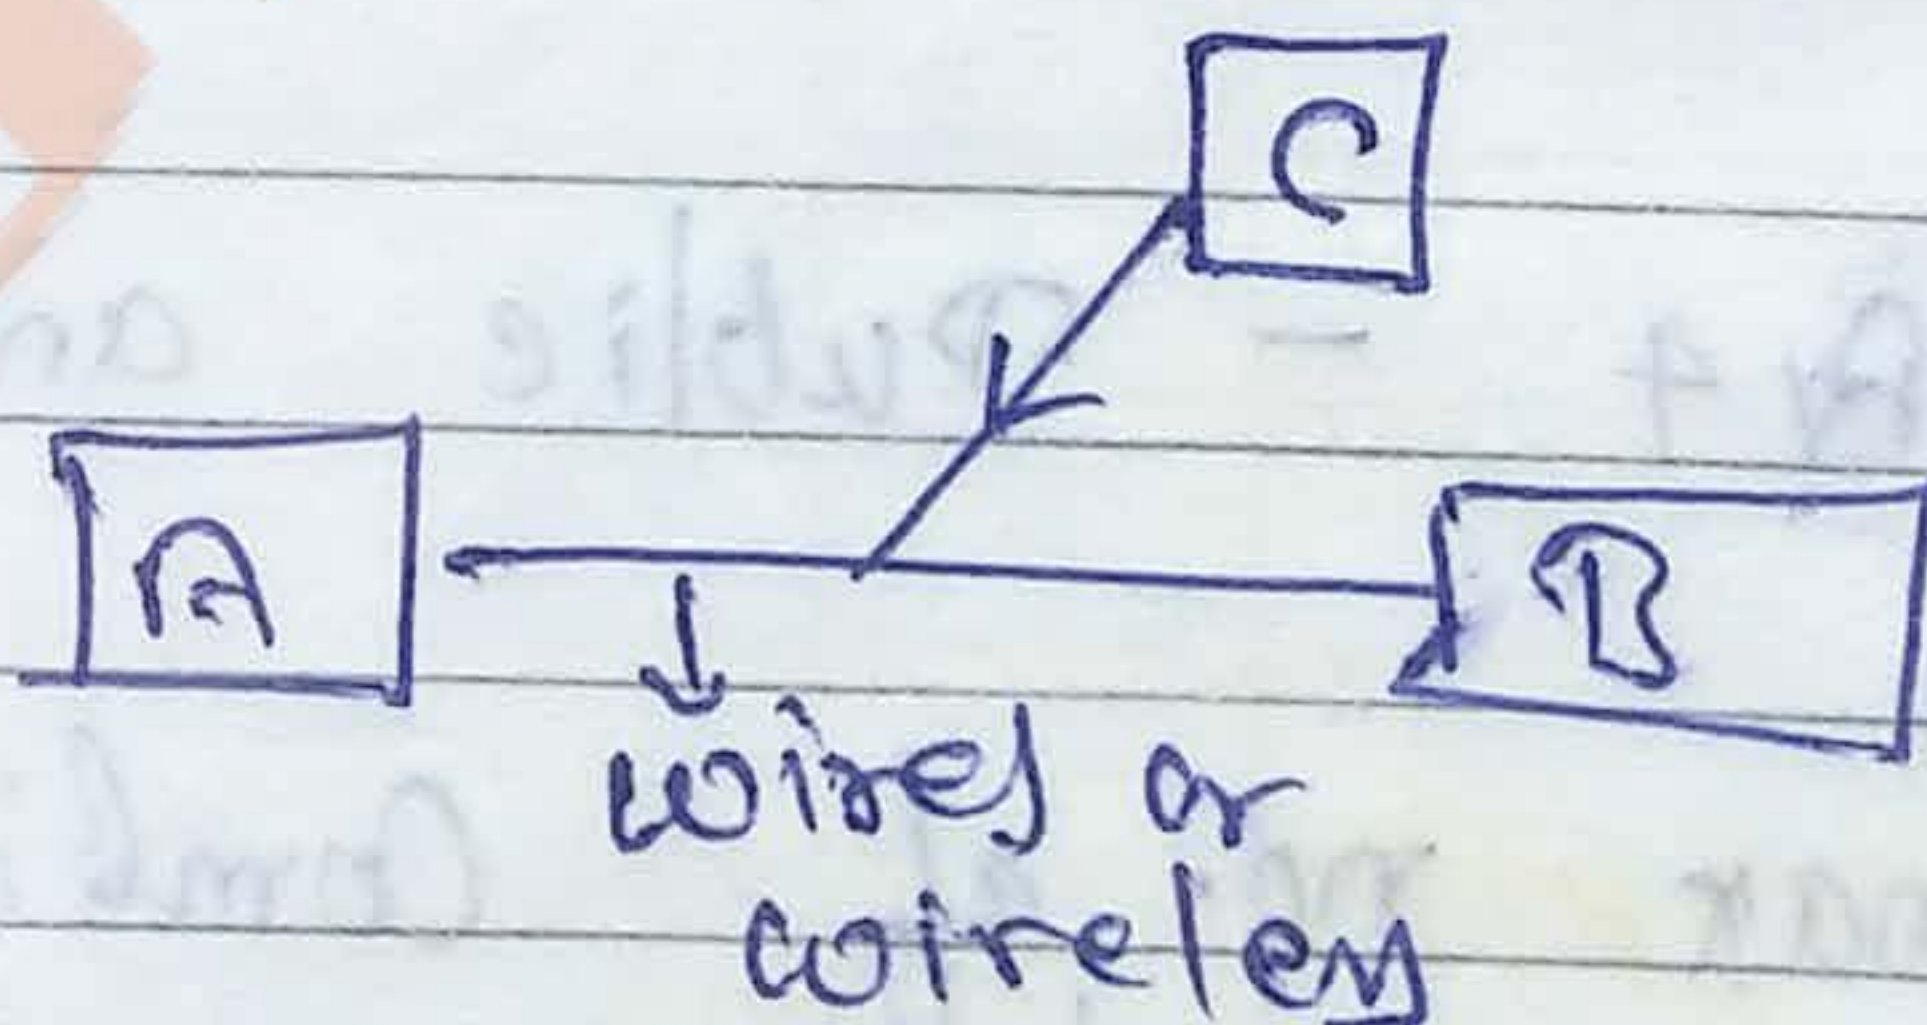 C
A
B
wires or
wireless